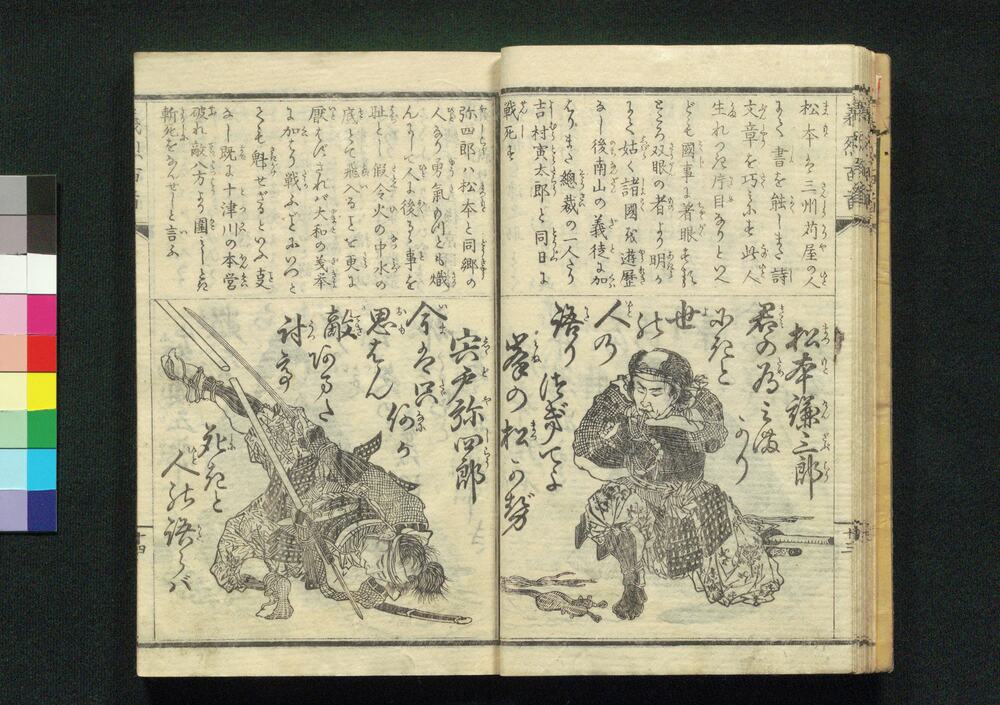 松本ハ三州苅屋の人
にて書を能しまた詩
文章を巧にす此人
生れつき片目なりといへ
ども國事に著眼する
ところ双眼の者より明か
にて姑く諸國を遊歴
なし後南山の義徒に加
はりまた總裁の一人たり
吉村寅太郎と同日に
戦死す
松本謙三郎
君の為みまかりにきと
世の人の
語りつぎてよ
峯の松かぜ
十三
弥四郎ハ松本と同郷の
人なり勇氣
んにして人に後るゝ事を
耻とし假令火の中水の
底にても飛入るを更に
厭はずされバ大和の義挙
に加はり戦ふごとにいつと
ても魁せざるといふ支
なし既に十津川の本営
破れ敵八方より圍
斬死をなんせしと言ふ
宍戸弥四郎
今ハ只何か
思はん
敵あまた
討て
死にきと
人の語らバ
十四